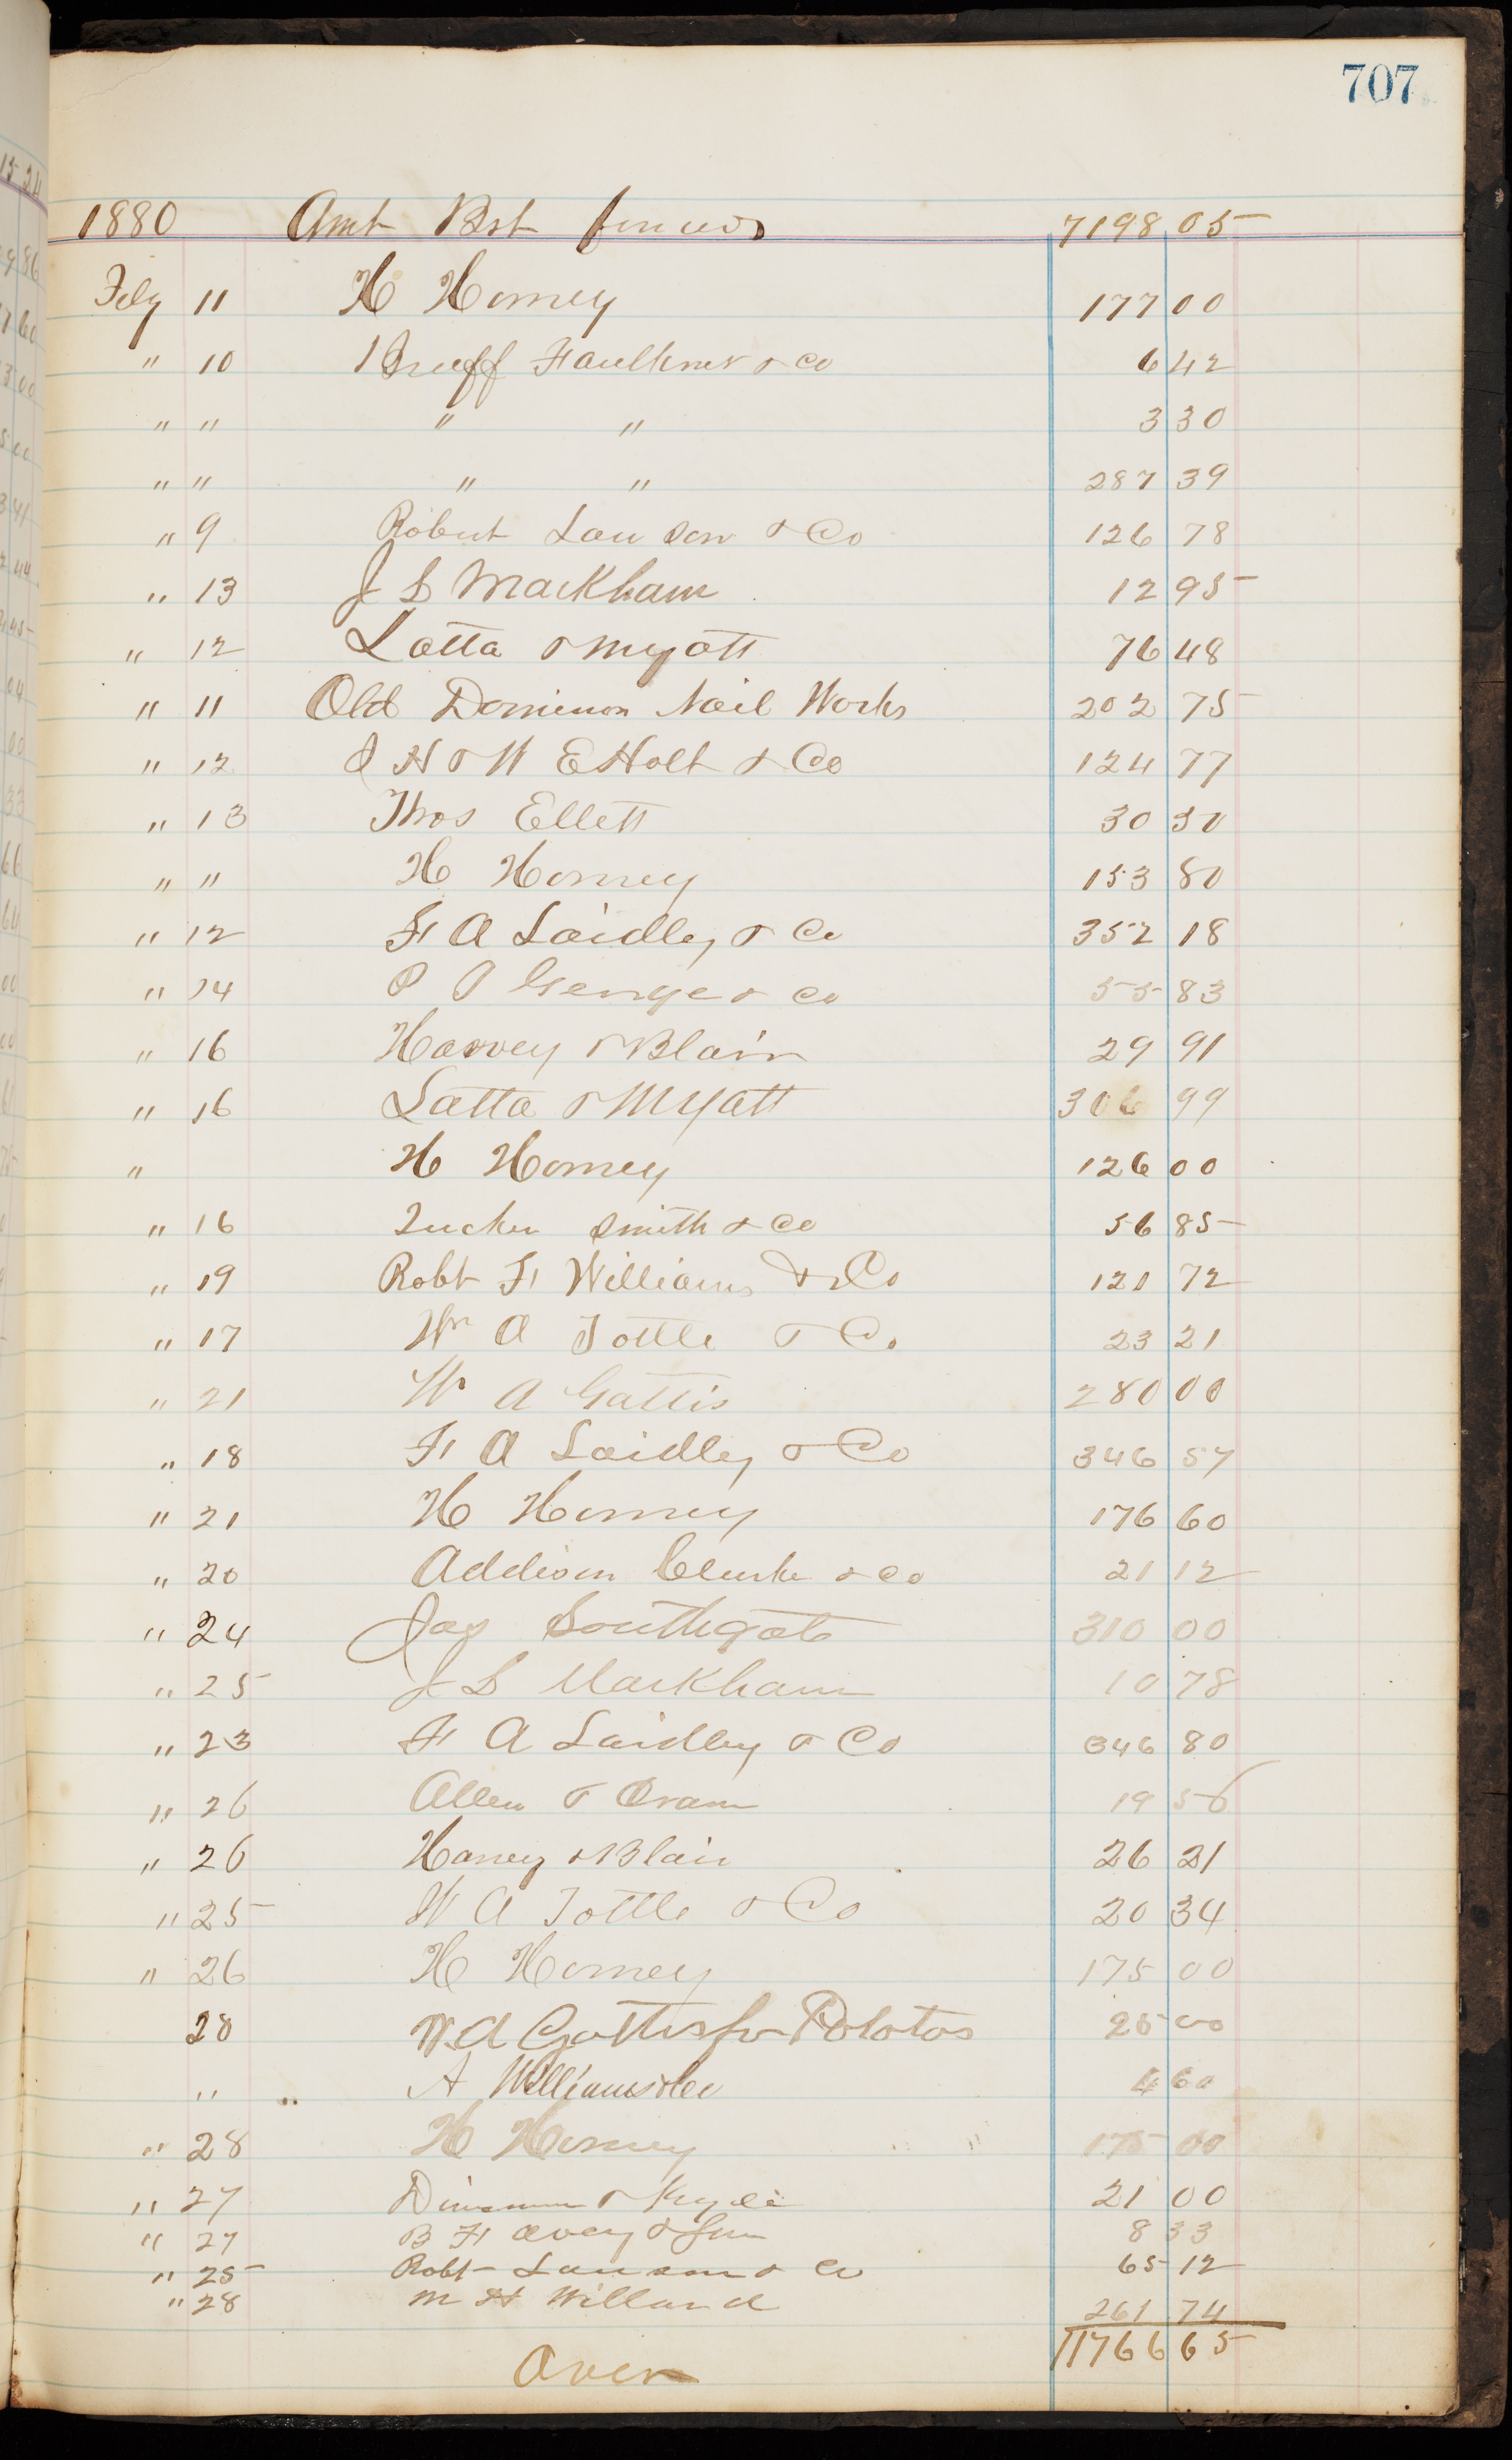 707
1880 Amt Brt forward 7198 05
Feby 11 H Horney 177 00
" 10 Bruff Faulkner & Co 6 42
" " " " 3 30
" " " " 287 39
" 9 Robert Lawson & Co 126 78
" 13 J L Markham 12 95
" 12 Latta & Myatt 76 48
" 11 Old Dominion Nail Works 202 75
" 12 J H & W E Holt & Co 124 77
" 13 Thos Ellett 30 50
" " H Horney 153 80
" 12 F A Laidley & Co 352 18
" 14 George & Co 55 83
" 16 Harvey & Blair 29 91
" 16 Latta & Myatt 306 99
" H Horney 126 00
" 16 Tucker Smith & Co 56 85
" 19 Robt F Williams & Co 121 72
" 17 Wm A Tottle & Co 23 21
" 21 W A Gattis 280 00
" 18 F A Laidley & Co 346 57
" 21 H Horney 176 60
" 20 Addison Clarke & Co 21 12
" 24 Jas Southgate 310 00
" 25 J L Markham 10 78
" 23 F A Laidley & Co 346 80
" 26 Allen & Oram 19 56
" 26 Harvey & Blair 26 21
" 25 W A Tottle & Co 20 34
" 26 H Horney 175 00
28 W A Gattis for Potatos 25 00
" " A Williams & Co 4 60
" 28 H Horney 175 00
" 27 & 21 00
" 27 B F Avery & Son 8 33
" 25 Robt Lawson & Co 65 12
" 28 M H Willard 261 74
Over 11766 65